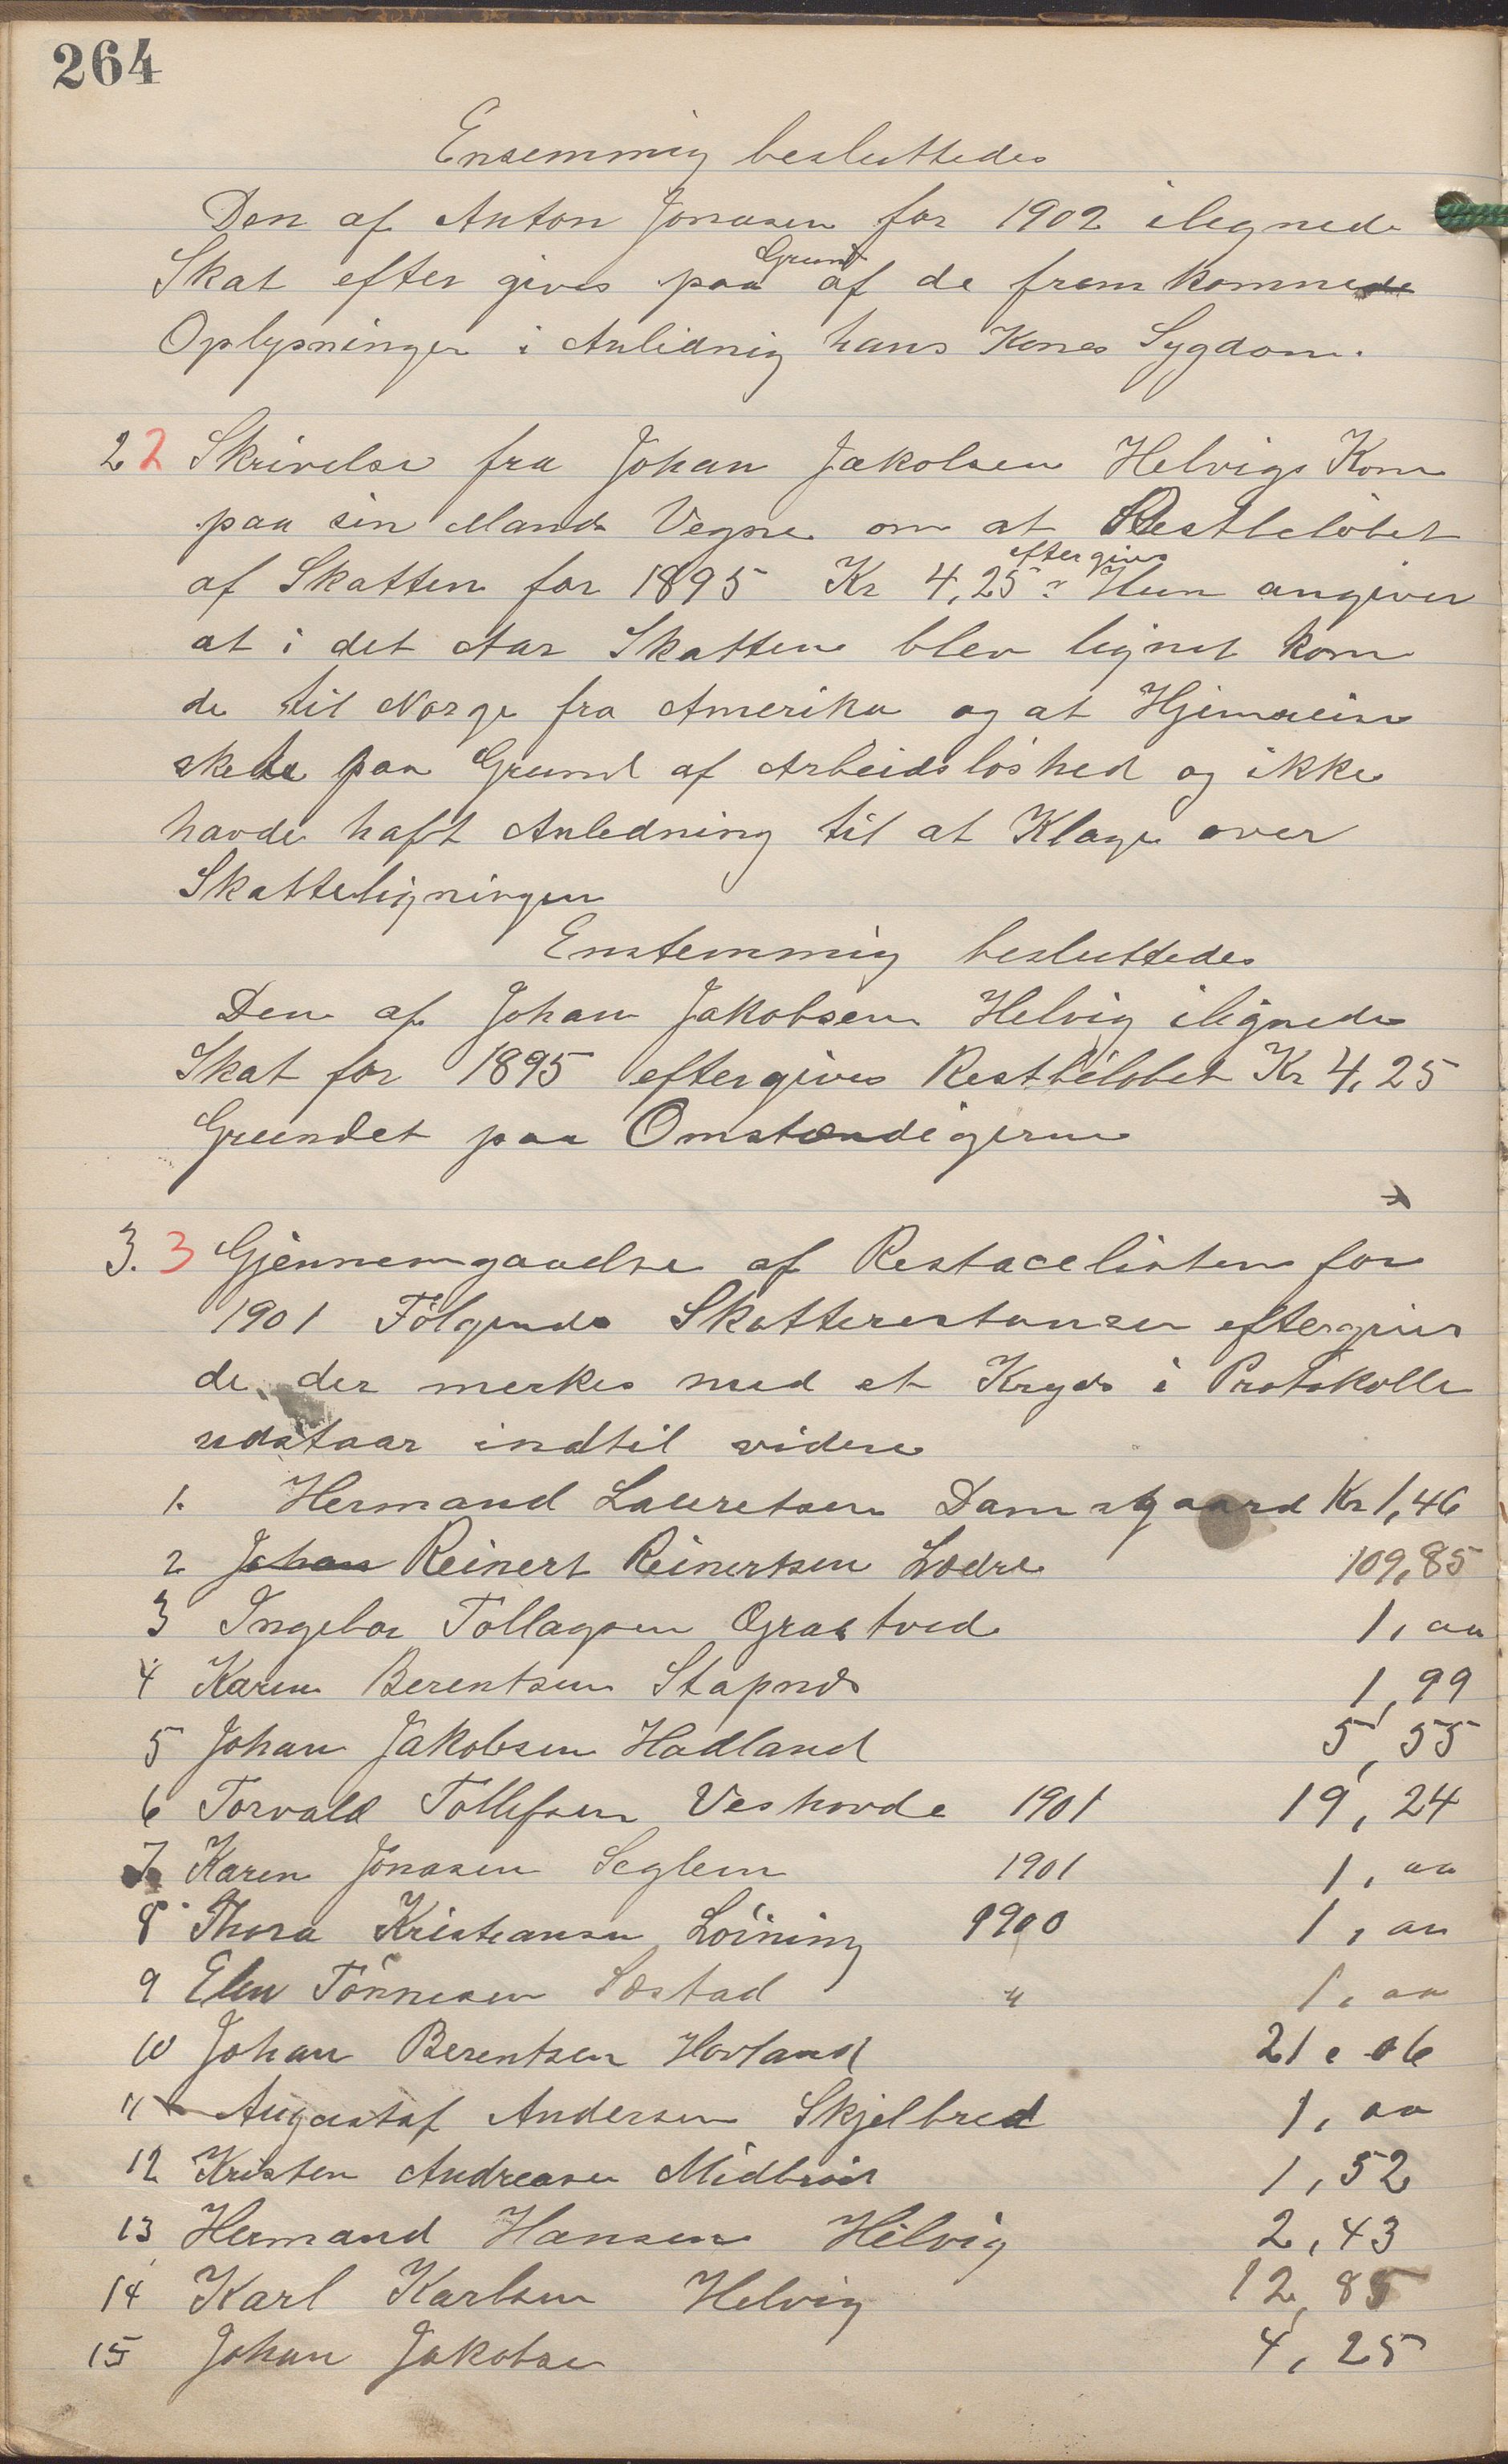 264
Ensemmig besluttedes
Den af Anton Jonasen for 1902 ilegnede
Skat efter gives paa Grund af de frem komne
Oplysninger i Anlidnig hans Kones Sygdom.
2 2 Skrivelse fra Johan Jakolsen Helvigs Kone
paa sin Mands Vegne om at Restbeløbet
af Skatten for 1895 Kr 4,25 eftergives Hun angiver
at i det Aar Skatten blev lignet kom
de til Norge fra Amerika og at Hjemreise
skede paa Grund af Arbeidsløshed og ikke
havde haft Anledning til at Klage over
Skatteligningen
Enstemmig besluttedes
Den af Johan Jakobsen Helvig ilignede
Skat for 1895 eftergives Restbeløbet Kr 4,25
Grundet paa Omstændigerne
3. 3 Gjennemgaaelse af Restacelisten for
1901 Følgende Skatterestanser eftergives
de der merkes med et Kryds i Protokolle
udstaar indtil videre
1. Hermand Lauretsen Damsgaard Kr 1,46
2 Johan Reinert Reinertsen Lædre 109,85
3 Ingebor Tollagsen Øgrastved 1, 00
4 Karen Berentsen Stapnes 1,99
5 Johan Jakobsen Hadland 5,55
6 Torvald Tollefsen Veshovde 1901 19,24
7 Karen Jonasen Seglem 1901 1, 00
8 Thora Kristiansen Løining 1900 1, 00
9 Elen Tønnesen Sæstad " 1, 00
10 Johan Berentsen Hovland 21, 06
11 Augustaf Andersen Skjelbred 1, 00
12 Kristen Andreasen Midbrød 1,52
13 Hermand Hansen Helvig 2,43
14 Karl Karlsen Helvig 12,85
15 Johan Jakobse 4,25